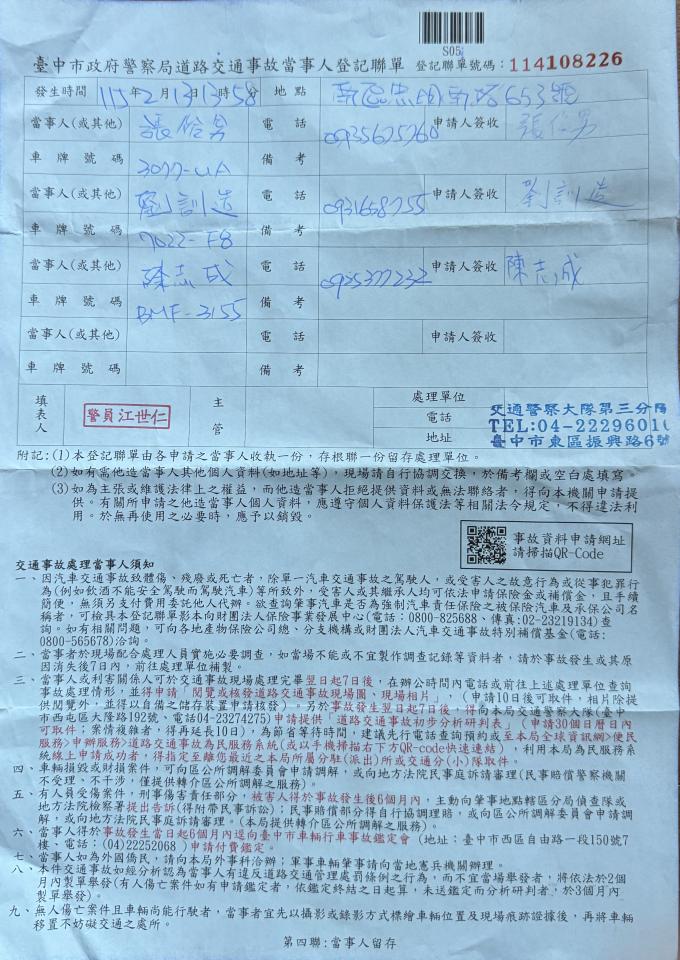 S05
臺中市政府警察局道路交通事故當事人登記聯單 登記聯單號碼:114108226
發生時間 115年2月13日13時58分 地點 南區忠明南路653號
當事人(或其他) 電話 0935675760 申請人簽收
車牌號碼 3077-UA 備考
當事人(或其他) 劉訓造 電話 0931658755 申請人簽收 劉訓造
車牌號碼 7022-F8 備考
當事人(或其他) 陳志成 電話 0935377232 申請人簽收 陳志成
車牌號碼 BMF-3155 備考
當事人(或其他) 電話 申請人簽收
車牌號碼 備考
填表人 警員江世仁 主管 處理單位 交通警察大隊第三分隊
電話 TEL:04-2229601
地址 臺中市東區振興路6號
附記:(1)本登記聯單由各申請之當事人收執一份,存根聯一份留存處理單位。
(2)如有需他造當事人其他個人資料(如地址等),現場請自行協調交換,於備考欄或空白處填寫。
(3)如為主張或維護法律上之權益,而他造當事人拒絕提供資料或無法聯絡者,得向本機關申請提
供。有關所申請之他造當事人個人資料,應遵守個人資料保護法等相關法令規定,不得違法利
用。於無再使用之必要時,應予以銷毀。
事故資料申請網址
請掃描QR-Code
交通事故處理當事人須知
一、因汽車交通事故致體傷、殘廢或死亡者,除單一汽車交通事故之駕駛人,或受害人之故意行為或從事犯罪行
為(例如飲酒不能安全駕駛而駕駛汽車)等所致外,受害人或其繼承人均可依法申請保險金或補償金,且手續
簡便,無須另支付費用委託他人代辦。欲查詢肇事汽車是否為強制汽車責任保險之被保險汽車及承保公司名
稱者,可檢具本登記聯單影本向財團法人保險事業發展中心(電話:0800-825688、傳真:02-23219134)查
詢。如有相關問題,可向各地產物保險公司總、分支機構或財團法人汽車交通事故特別補償基金(電話:
0800-565678)洽詢。
二、當事者於現場配合處理人員實施必要調查,如當場不能或不宜製作調查記錄等資料者,請於事故發生或其原
因消失後7日內,前往處理單位補製。
三、當事人或利害關係人可於交通事故現場處理完畢翌日起7日後,在辦公時間內電話或前往上述處理單位查詢
事故處理情形,並得申請「閱覽或核發道路交通事故現場圖、現場相片」,(申請10日後可取件,相片除提
供閱覽外,並得以自備之儲存裝置申請核發)。另於事故發生翌日起7日後,得向本局交通警察大隊(臺中
市西屯區大隆路192號、電話04-23274275)申請提供「道路交通事故初步分析研判表」(申請30個日曆日內
可取件;案情複雜者,得再延長10日),為節省等待時間,建議先行電話查詢預約或至本局全球資訊網>便民
服務>申辦服務>道路交通事故為民服務系統(或以手機掃描右下方QR-code快速連結),利用本局為民服務系
統線上申請成功者,得指定至離您最近之本局所屬分駐(派出)所或交通分(小)隊取件。
四、車輛損毀或財損案件,可向區公所調解委員會申請調解,或向地方法院民事庭訴請審理(民事賠償警察機關
不受理、不干涉,僅提供轉介區公所調解之服務)。
五、有人員受傷案件,刑事傷害責任部分,被害人得於事故發生後6個月內,主動向肇事地點轄區分局偵查隊或
地方法院檢察署提出告訴(得附帶民事訴訟);民事賠償部分得自行協調理賠,或向區公所調解委員會申請調
解,或向地方法院民事庭訴請審理。(本局提供轉介區公所調解之服務)。
六、當事人得於事故發生當日起6個月內逕向臺中市車輛行車事故鑑定會 (地址:臺中市西區自由路一段150號7
樓、電話:(04)22252068 )申請付費鑑定。
七、當事人如為外國僑民,請向本局外事科洽辦;軍事車輛肇事請向當地憲兵機關辦理。
八、本件交通事故如經分析認為當事人有違反道路交通管理處罰條例之行為,而不宜當場舉發者,將依法於2個
月內製單舉發(有人傷亡案件如有申請鑑定者,依鑑定終結之日起算,未送鑑定而分析研判者,於3個月內
製單舉發)。
九、無人傷亡案件且車輛尚能行駛者,當事者宜先以攝影或錄影方式標繪車輛位置及現場痕跡證據後,再將車輛
移置不妨礙交通之處所。
第四聯:當事人留存